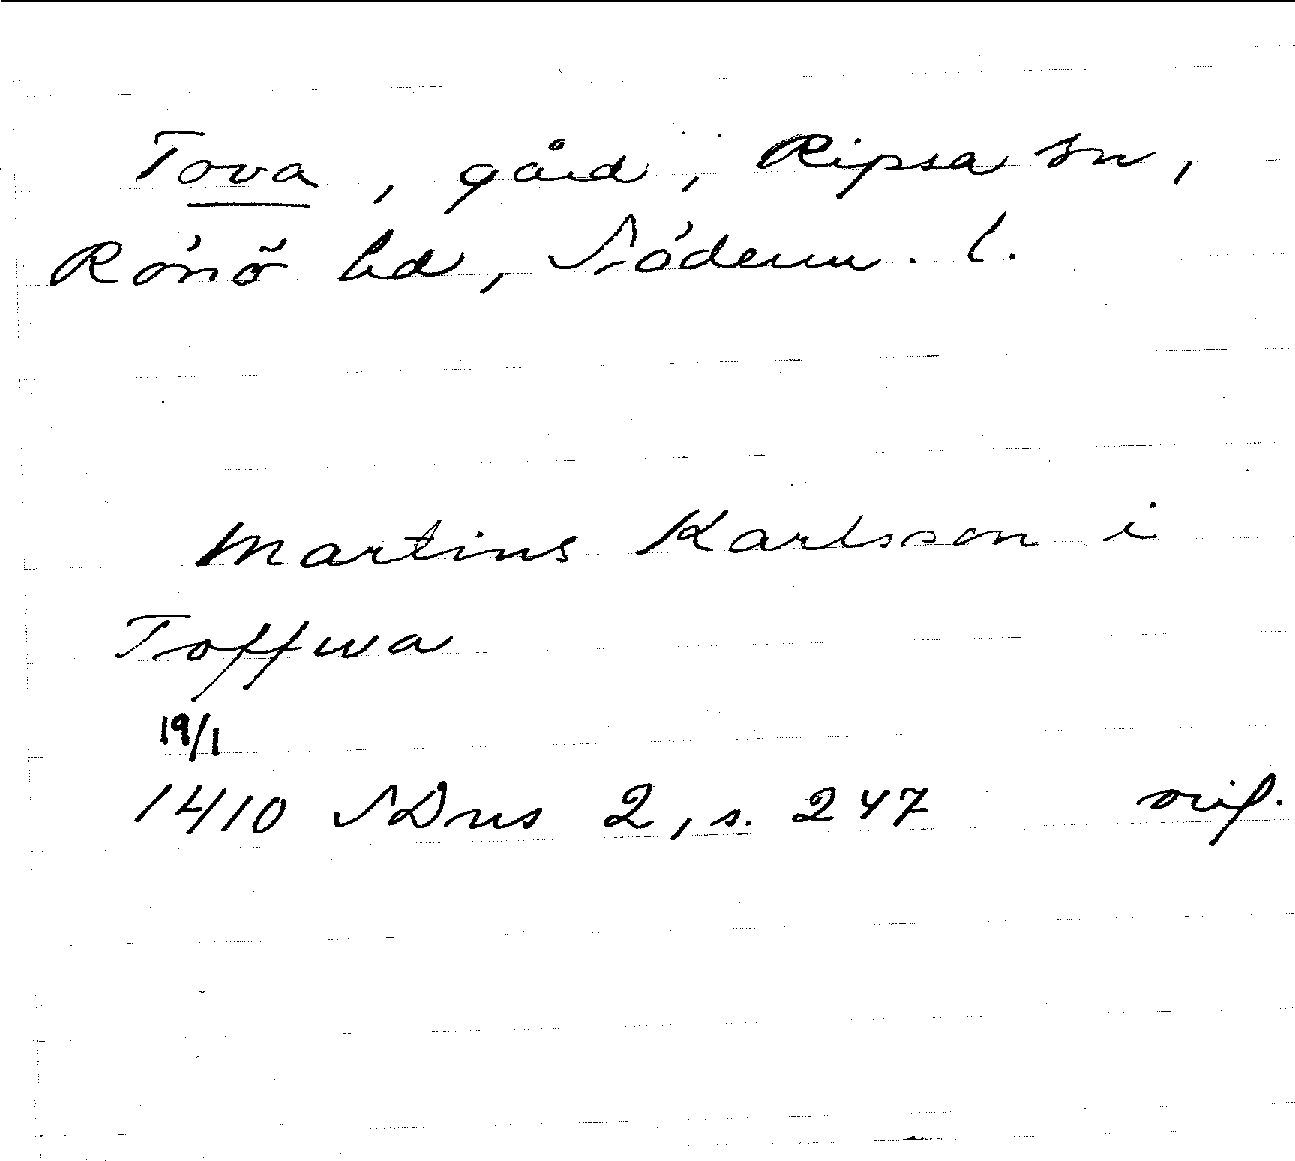 Tova, gård, Ripsa sn,
Rönö hd, Söderm. l.
Martins Karlsson i
Toffwa
19/1
1410 SDns 2, s. 247 orig.